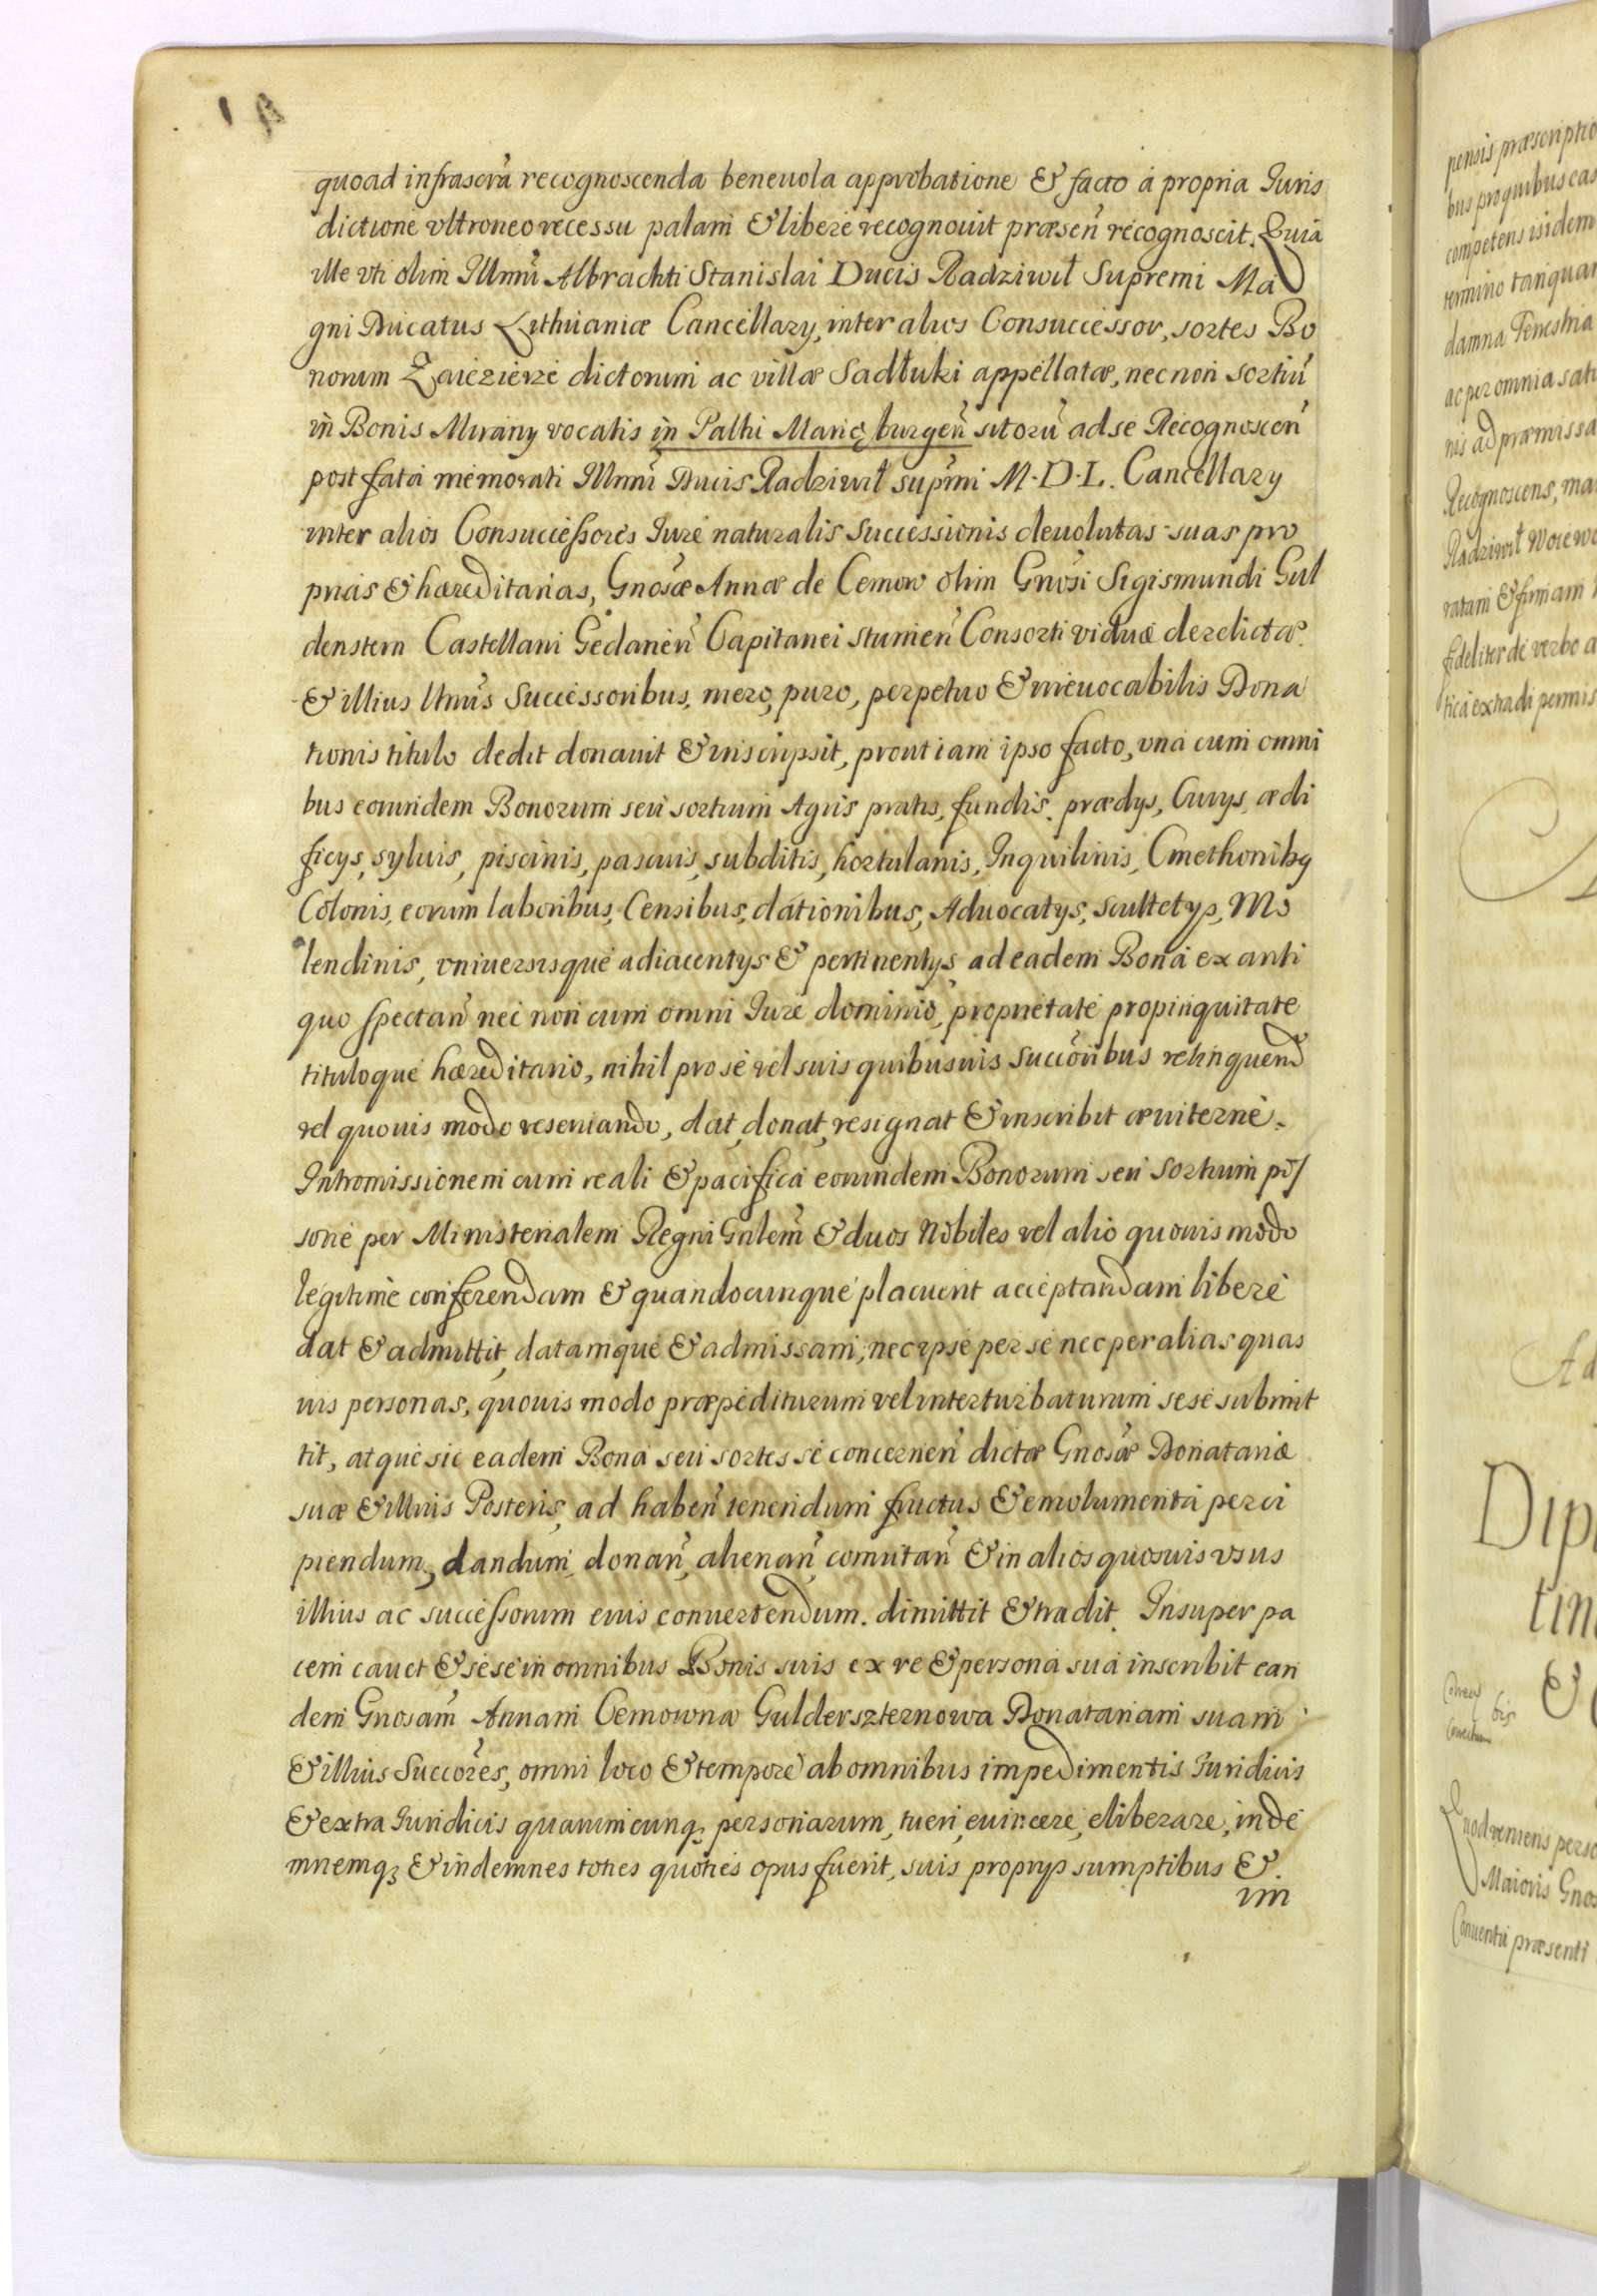 quoad infrascrā recognoscenda beneuola approbatione & facto á propria Iuris
dictione vltroneo recessu palam & libere recognouit præsen̄ recognoscit. Quia
ille vti olim Illmī Albrachti Stanislai Ducis Radziwił Supremi Ma
gni Ducatus Lithuaniæ Cancellary, inter alios Consuccessor, sortes Bo
norum Zaiezierze dictorum ac villæ Sadłuki appellatæ, nec non sortiū
in Bonis Mirany vocatis in Palhi Marię burgen̄ sitorū ad se Recognoscen̄
post fata memorati Illmī Ducis Radziwił supm̄i M. D. L. Cancellary
inter alios Consuccessores Iure naturalis Successionis deuolutas suas pro
prias & hæreditarias, Gnosæ Annæ de Cemow olim Gnosi Sigismundi Gul
denstern Castellani Gedanen̄ Capitanei Stumen̄ Consorti viduæ derelictæ
& illius ltmis Successoribus, mero, puro, perpetuo & irreuocabilis Dona
tionis titulo dedit donauit & inscripsit, prout iam ipso facto, vna cum omni
bus eorundem Bonorum seu sortium Agris pratis, fundis, prædys, Curys, ædi
ficys, syluis, piscinis, pascuis, subditis, hortulanis, Inquilinis, Cmethonibȝ
Colonis, eorum laboribus, Censibus, dationibus, Aduocatys, scultetys, Mo
lendinis, vniuersisque adiacentys & pertinentys ad eadem Bona ex anti
quo spectan̄ nec non cum omni Iure dominio, proprietate propinquitate
tituloque hæreditario, nihil pro se vel suis quibusuis succoribus relinquend
vel quouis modo reseruando, dat, donat, resignat & inscribit æviterne.
Intromissionem cum reali & pacifica eorundem Bonorum seu Sortium pos
sone per Ministerialem Regni Gnlem & duos Nobiles vel alio quouis modo
legitime conferendam & quandocunque placuerit acceptandam libere
dat & admittit, datamque & admissam, nec ipse per se nec per alias quas
uis personas, quouis modo præpediturum vel interturbaturum sese submit
tit, atque sic eadem Bona seu sortes se concernen̄ dictæ Gnosæ Donatariæ
suæ & illius Posteris, ad haben̄ tenendum fructus & emolumenta perci
piendum, dandum, donan̄, alienan̄, comutan̄ & in alios quosuis vsus
illius ac successorum euis conuertendum. dimittit & tradit. Insuper pa
cem cauet & sese in omnibus Bonis suis ex re & persona sua inscribit ean
dem Gnosam Annam Cemowna Gulderszternowa Donatariam suam
& illius Succores, omni loco & tempore ab omnibus impedimentis Iuridicis
& extra Iuridicis quarumcunqȝ personarum, tueri, euincere, eliberare, inde
mnemqȝ & indemnes toties quoties opus fuerit, suis proprys sumptibus &.
im
pensis præscriptio
bus pro quibus cas
competens isidem
termino tanquam
damna Terrestria
ac per omnia sati
nis ad præmissa
Recognoscens, ma
Radziwił Woiewo
ratam & firmam
fideliter de verbo a
tica extradi permis
Ad
Dip
tin
& 
bis
Quod veniens perso
Maioris Gnos
Conuentu præsenti